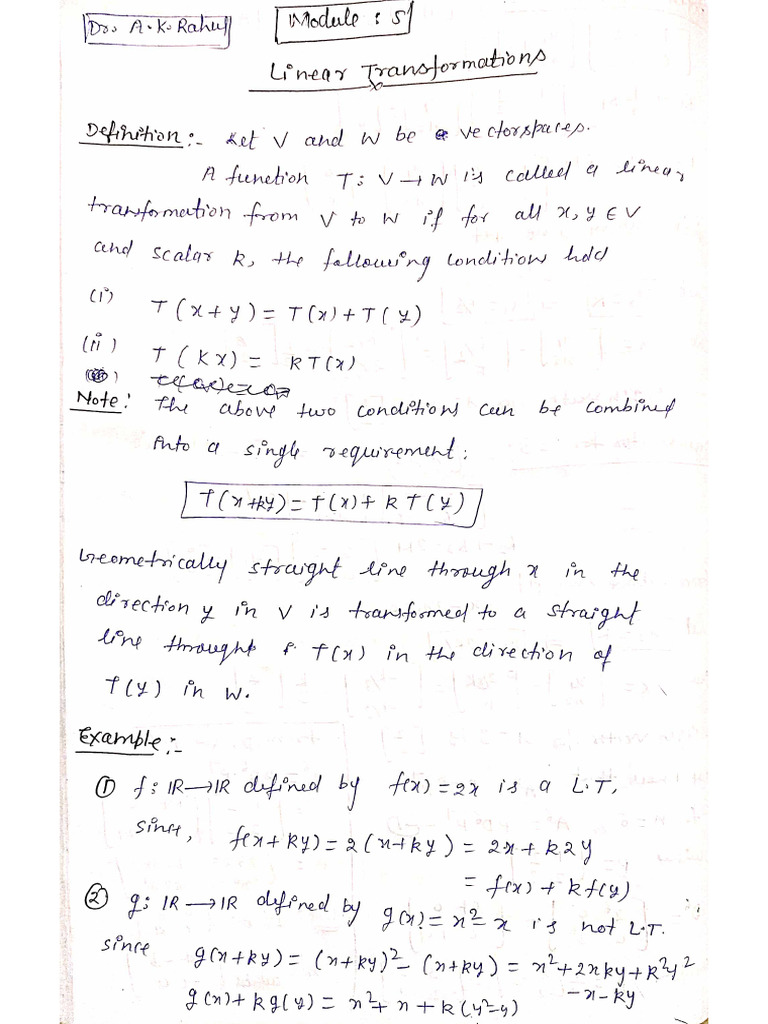 Dr. A.K. Rahul
Module : 5
Linear Transformations
Definition:- Let V and W be vectorspaces.
A function T: V → W is called a linear
transformation from V to W if for all x, y ∈ V
and scalar k, the following condition hold
(i) T(x+y) = T(x)+T(y)
(ii) T(kx) = kT(x)
Note: The above two conditions can be combined
into a single requirement:
T(x+ky) = T(x)+kT(y)
Geometrically straight line through x in the
direction y in V is transformed to a straight
line throught T(x) in the direction of
T(y) in W.
Example:-
① f: IR→IR defined by f(x) = 2x is a L.T,
since, f(x+ky) = 2(x+ky) = 2x + k2y
= f(x) + kf(y)
② g: IR→IR defined by g(x) = x²-x is not L.T.
since g(x+ky) = (x+ky)² - (x+ky) = x²+2xky+k²y²
-x-ky
g(x)+kg(y) = x²+x+k(y²-y)